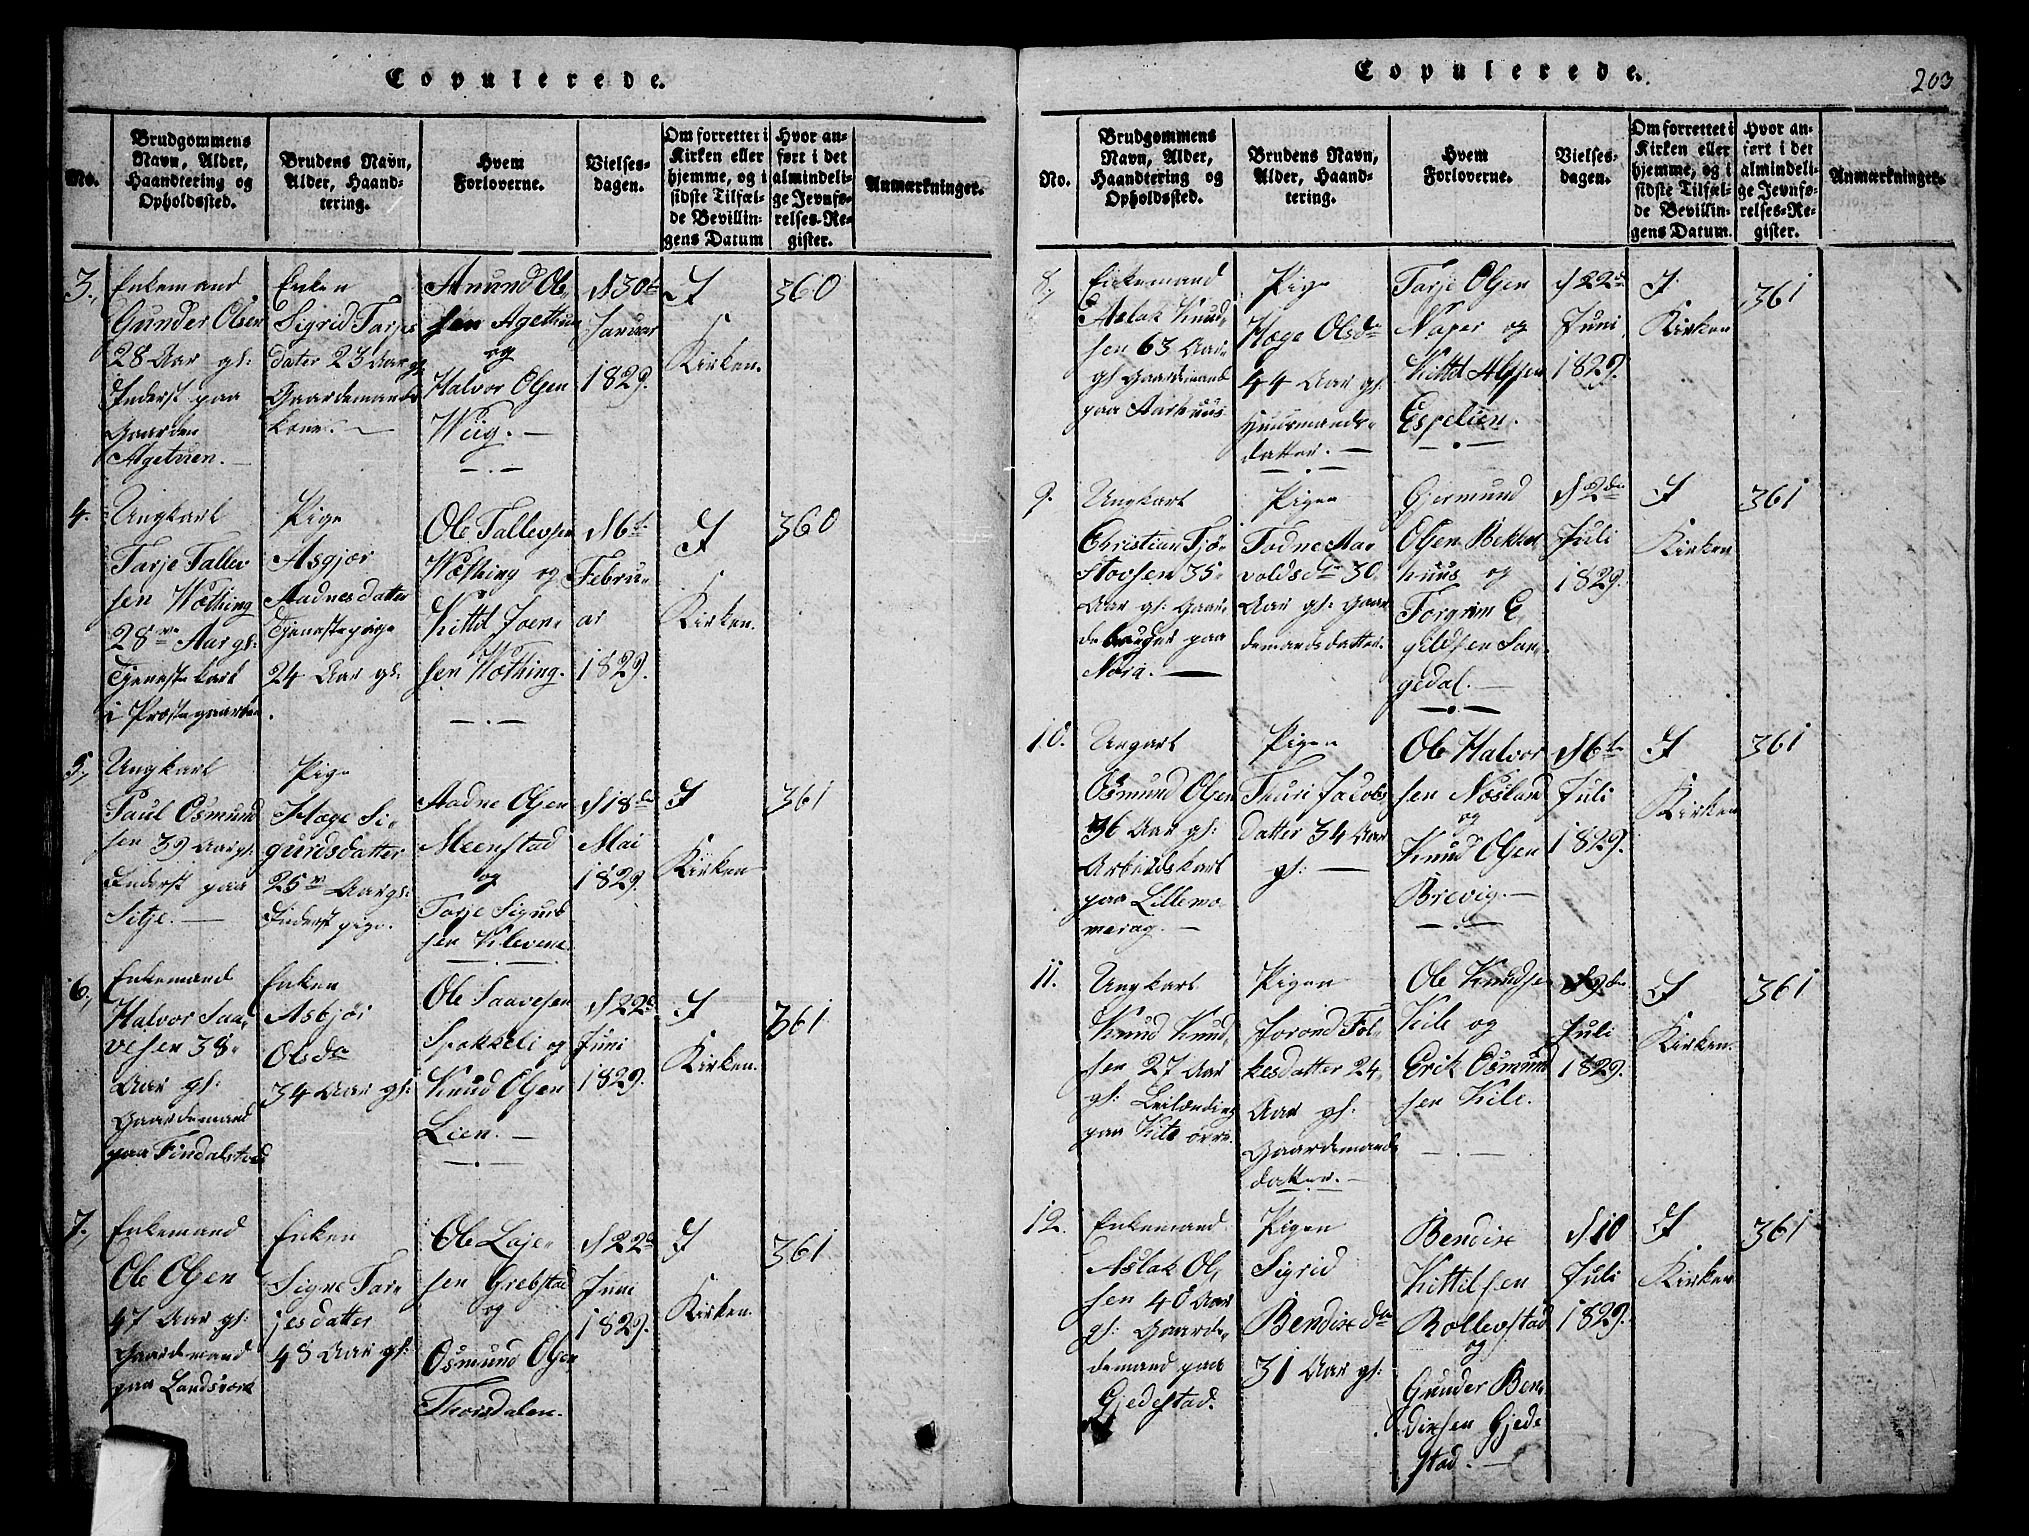 Copulerede.
No.
Brudgommens
Navn, Alder,
Haandtering og
Opholdssted.
Brudens Navn,
Alder, Haand-
tering.
Hvem
Forloverne.
Vielses-
dagen.
Om forrettet i
Kirken eller
hjemme, og i
sidste Tilfæl-
de Bevillin-
gens Datum
Hvor an-
ført i det
almindeli-
ge Jevnfø-
relses-Re-
gister.
Anmærkninger.
3.
Enkemand
Gunder Olsen
28 Aar gl:
Inderst paa
Gaarden
Agetuen.
Enken
Sigrid Tarjes
dater 23 Aar gl
Gaardemands
kone.
Amund Ol-
sen Agethun
og
Halvor Olsen
Wiig.
d 30t
Januar
1829.
I
Kirken.
360
4.
Ungkarl
Tarje Tallev
sen Wæthing
28 Aar gl:
Tjenestekarl
i Præstegaarden.
Pige
Asgjør
Aadnesdatter
Tjenestepige
24 Aar gl:
Ole Tallevsen
Wæthing og
Kittil Joen-
sen Wæthing.
d 6t
Febru-
ar
1829.
I
Kirken.
360
5.
Ungkarl
Paul Osmund
sen 39 Aar gl.
Inderst paa
Sitje.
Pige
Hæge Si-
gurdsdatter
25 Aar gl:
Inderst pige.
Aadne Olsen
Meenstad
og
Tarje Sigurd
sen Klevene
d 18de
Mai
1829.
I
Kirken
361
6.
Enkemand
Halvor Saa-
vesen 38-
Aar gl:
Gaardemand
paa Findalstad
Enken
Asbjør
Olsda
34 Aar gl:
Ole Saavesen
Spokkeli og
Knud Olsen
Lien.
d 22d
Juni
1829.
I
Kirken.
361
7.
Enkemand
Ole Olsen
47 Aar gl:
Gaardemand
paa Landsværk
Enken
Signe Tar-
jesdatter
48 Aar gl:
Ole Loje-
sen Grebstad
og
Osmund Olsen
Thorsdalen.
d 22d
Juni
1829.
I
Kirken.
361
Copulerede.
203
No.
Brudgommens
Navn, Alder,
Haandtering og
Opholdssted.
Brudens Navn,
Alder, Haand-
tering.
Hvem
Forloverne.
Vielses-
dagen.
Om forrettet i
Kirken eller
hjemme, og i
sidste Tilfæl-
de Bevillin-
gens Datum.
Hvor an-
ført i det
almindeli-
ge Jevnfø-
relses-Re-
gister.
Anmærkninger.
8.
Enkemand
Aslak Knud-
sen 63 Aar
gl Gaardemand
paa Aarhuus
Pige
Hæge Olsda
44 Aar gl:
Huusmands-
datter.
Tarje Olsen
Naper og
Kittil Alfsen
Espelien.
d 22d
Juni
1829.
I
Kirken
361
9.
Ungkarl
Christian Tjø-
stovsen 35-
Aar gl: Gaar-
debruger paa
Nora.
Pigen
Todne Aa-
voldsda 30
Aar gl: Gaar
demandsdatter.
Gjermund
Olsen Bekker
huus og
Torgrim E-
jeldsen Lan-
gedal.
d 2den
Juli
1829.
I
Kirken
361
10.
Ungarl
Osmund Olsen
36 Aar gl:
Arbeidskarl
paa Lillemo-
merag.
Pigen
Thuri Jacobs
datter 34 Aar
gl:
Ole Halvor
sen Næsland
og
Knud Olsen
Brevig.
d 6te
Juli
1829.
I
Kirken
361
11.
Ungkarl
Knud Knud-
sen 27 Aar
gl: Leilænding
paa Kile øvre.
Pigen
Jorond Fol-
kesdatter 24
Aar gl:
Gaardemands
datter.
Ole Knudsen
Kile og
Erik Osmund
sen Kile.
d 9de
Juli
1829.
I
Kirken.
361
12.
Enkemand
Aslak Ol-
sen 40 Aar
gl: Gaar-
demand paa
Gjedestad.
Pigen
Sigrid
Bendixda
31 Aar gl:
Bendix
Kittilsen
Rollevstad
og
Gunder Ben-
dixsen Gjede
stad.
d. 10
Juli
1829.
I
Kirken
361